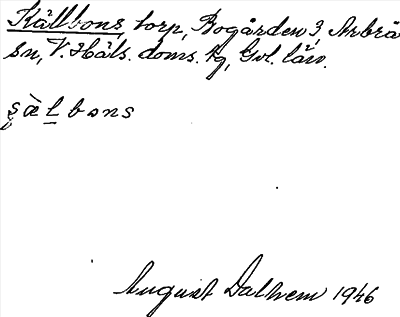 Källbons, torp, Bogården 3, Arbrå
sn, V. Häls. doms. tg, Gvl. län.
s̨ὰl̲bons
August Dalhem 1946